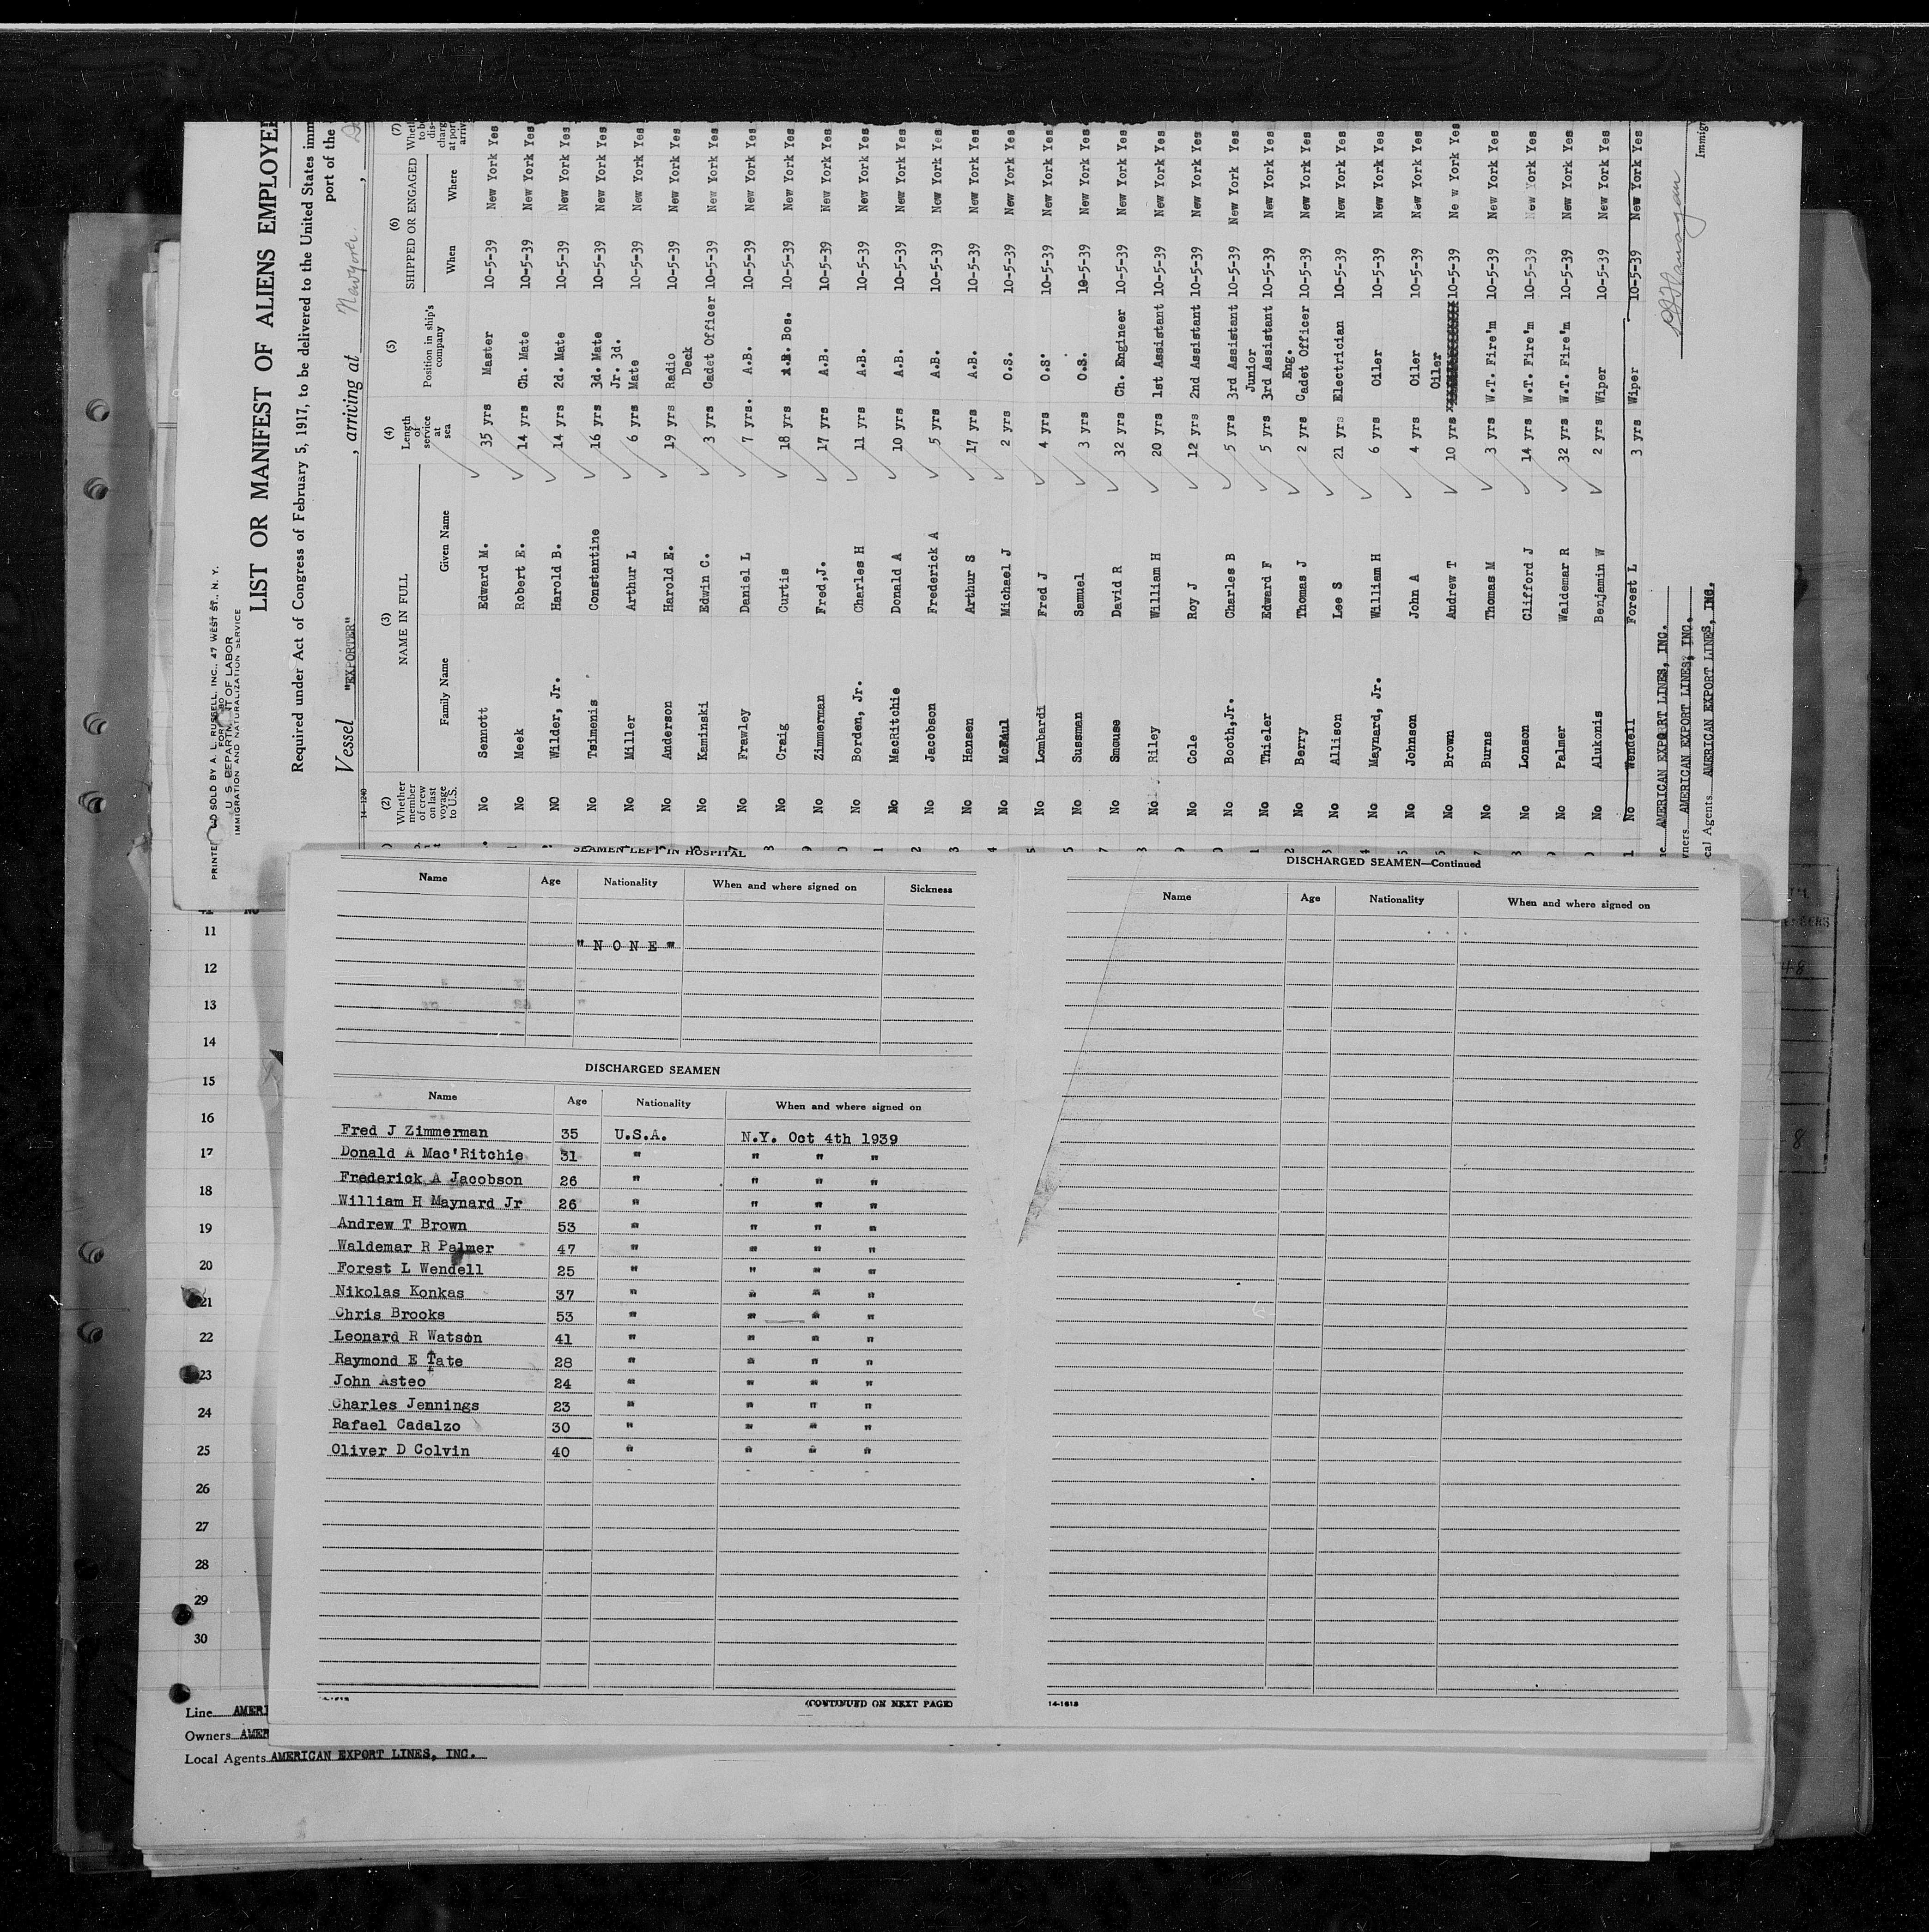 PRINTED
SOLD BY A. L. RUSSELL, INC., 47 WEST ST., N. Y.
FORM 680
U. S. DEPARTMENT OF LABOR
IMMIGRATION AND NATURALIZATION SERVICE
LIST OR MANIFEST OF ALIENS EMPLOYE
Required under Act of Congress of February 5, 1917, to be delivered to the United States imm
port of the
Vessel "EXPORTER" , arriving at New York. ,
14-1240
(2) (3) (4) (5) (6) (7)
Whether member of crew on last voyage to U.S. NAME IN FULL Length of service at sea Position in ship's company SHIPPED OR ENGAGED Wheth to be dis- charg at port arriv
Family Name Given Name When Where
No Sennott Edward M. 35 yrs Master 10-5-39 New York Yes
No Meek Robert E. 14 yrs Ch. Mate 10-5-39 New York Yes
NO Wilder, Jr. Harold B. 14 yrs 2d. Mate 10-5-39 New York Yes
No Tsimenis Constantine 16 yrs 3d. Mate 10-5-39 New York Yes
No Miller Arthur L 6 yrs Jr. 3d. Mate 10-5-39 New York Yes
No Anderson Harold E. 19 yrs Radio 10-5-39 New York Yes
No Kaminski Edwin C. 3 yrs Deck Cadet Officer 10-5-39 New York Yes
No Frawley Daniel L 7 yrs. A.B. 10-5-39 New York Yes
No Craig Curtis 18 yrs A.B. Bos. 10-5-39 New York Yes
No Zimmerman Fred,J. 17 yrs A.B. 10-5-39 New York Yes
No Borden, Jr. Charles H 11 yrs A.B. 10-5-39 New York Yes
No MacRitchie Donald A 10 yrs A.B. 10-5-39 New York Yes
No Jacobson Frederick A 5 yrs A.B. 10-5-39 New York Yes
No Hansen Arthur S 17 yrs A.B. 10-5-39 New York Yes
No McPaul Michael J 2 yrs O.S. 10-5-39 New York Yes
No Lombardi Fred J 4 yrs O.S. 10-5-39 New York Yes
No Sussman Samuel 3 yrs O.S. 10-5-39 New York Yes
No Smouse David R 32 yrs Ch. Engineer 10-5-39 New York Yes
No Riley William H 20 yrs 1st Assistant 10-5-39 New York Yes
No Cole Roy J 12 yrs 2nd Assistant 10-5-39 New York Yes
No Booth,Jr. Charles B 5 yrs 3rd Assistant 10-5-39 New York Yes
No Thieler Edward F 5 yrs Junior 3rd Assistant 10-5-39 New York Yes
No Berry Thomas J 2 yrs Eng. Cadet Officer 10-5-39 New York Yes
No Allison Lee S 21 yrs Electrician 10-5-39 New York Yes
No Maynard, Jr. William H 6 yrs Oiler 10-5-39 New York Yes
No Johnson John A 4 yrs Oiler 10-5-39 New York Yes
No Brown Andrew T 10 yrs Oiler 10-5-39 Ne w York Yes
No Burns Thomas M 3 yrs W.T. Fire'm 10-5-39 New York Yes
No Lonson Clifford J 14 yrs W.T. Fire'm 10-5-39 New York Yes
No Palmer Waldemar R 32 yrs W.T. Fire'm 10-5-39 New York Yes
No Alukonis Benjamin W 2 yrs Wiper 10-5-39 New York Yes
No Wendell Forest L 3 yrs Wiper 10-5-39 New York Yes
AMERICAN EXPORT LINES, INC.
wners AMERICAN EXPORT LINES, INC.
cal Agents AMERICAN EXPORT LINES, INC.
Immigr
SEAMEN LEFT IN HOSPITAL
Name Age Nationality When and where signed on Sickness
"NONE"
DISCHARGED SEAMEN
Name Age Nationality When and where signed on
Fred J Zimmerman 35 U.S.A. N.Y. Oct 4th 1939
Donald A Mac'Ritchie 31 " " " "
Frederick A Jacobson 26 " " " "
William H Maynard Jr 26 " " " "
Andrew T Brown 53 " " " "
Waldemar R Palmer 47 " " " "
Forest L Wendell 25 " " " "
Nikolas Konkas 37 " " " "
Chris Brooks 53 " " " "
Leonard R Watson 41 " " " "
Raymond E Tate 28 " " " "
John Asteo 24 " " " "
Charles Jennings 23 " " " "
Rafael Cadalzo 30 " " " "
Oliver D Colvin 40 " " " "
(CONTINUED ON NEXT PAGE)
DISCHARGED SEAMEN—Continued
Name Age Nationality When and where signed on
14-1618
11
12
13
14
15
16
17
18
19
20
21
22
23
24
25
26
27
28
29
30
48
8
Line AMERI
Owners AMER
Local Agents AMERICAN EXPORT LINES, INC.